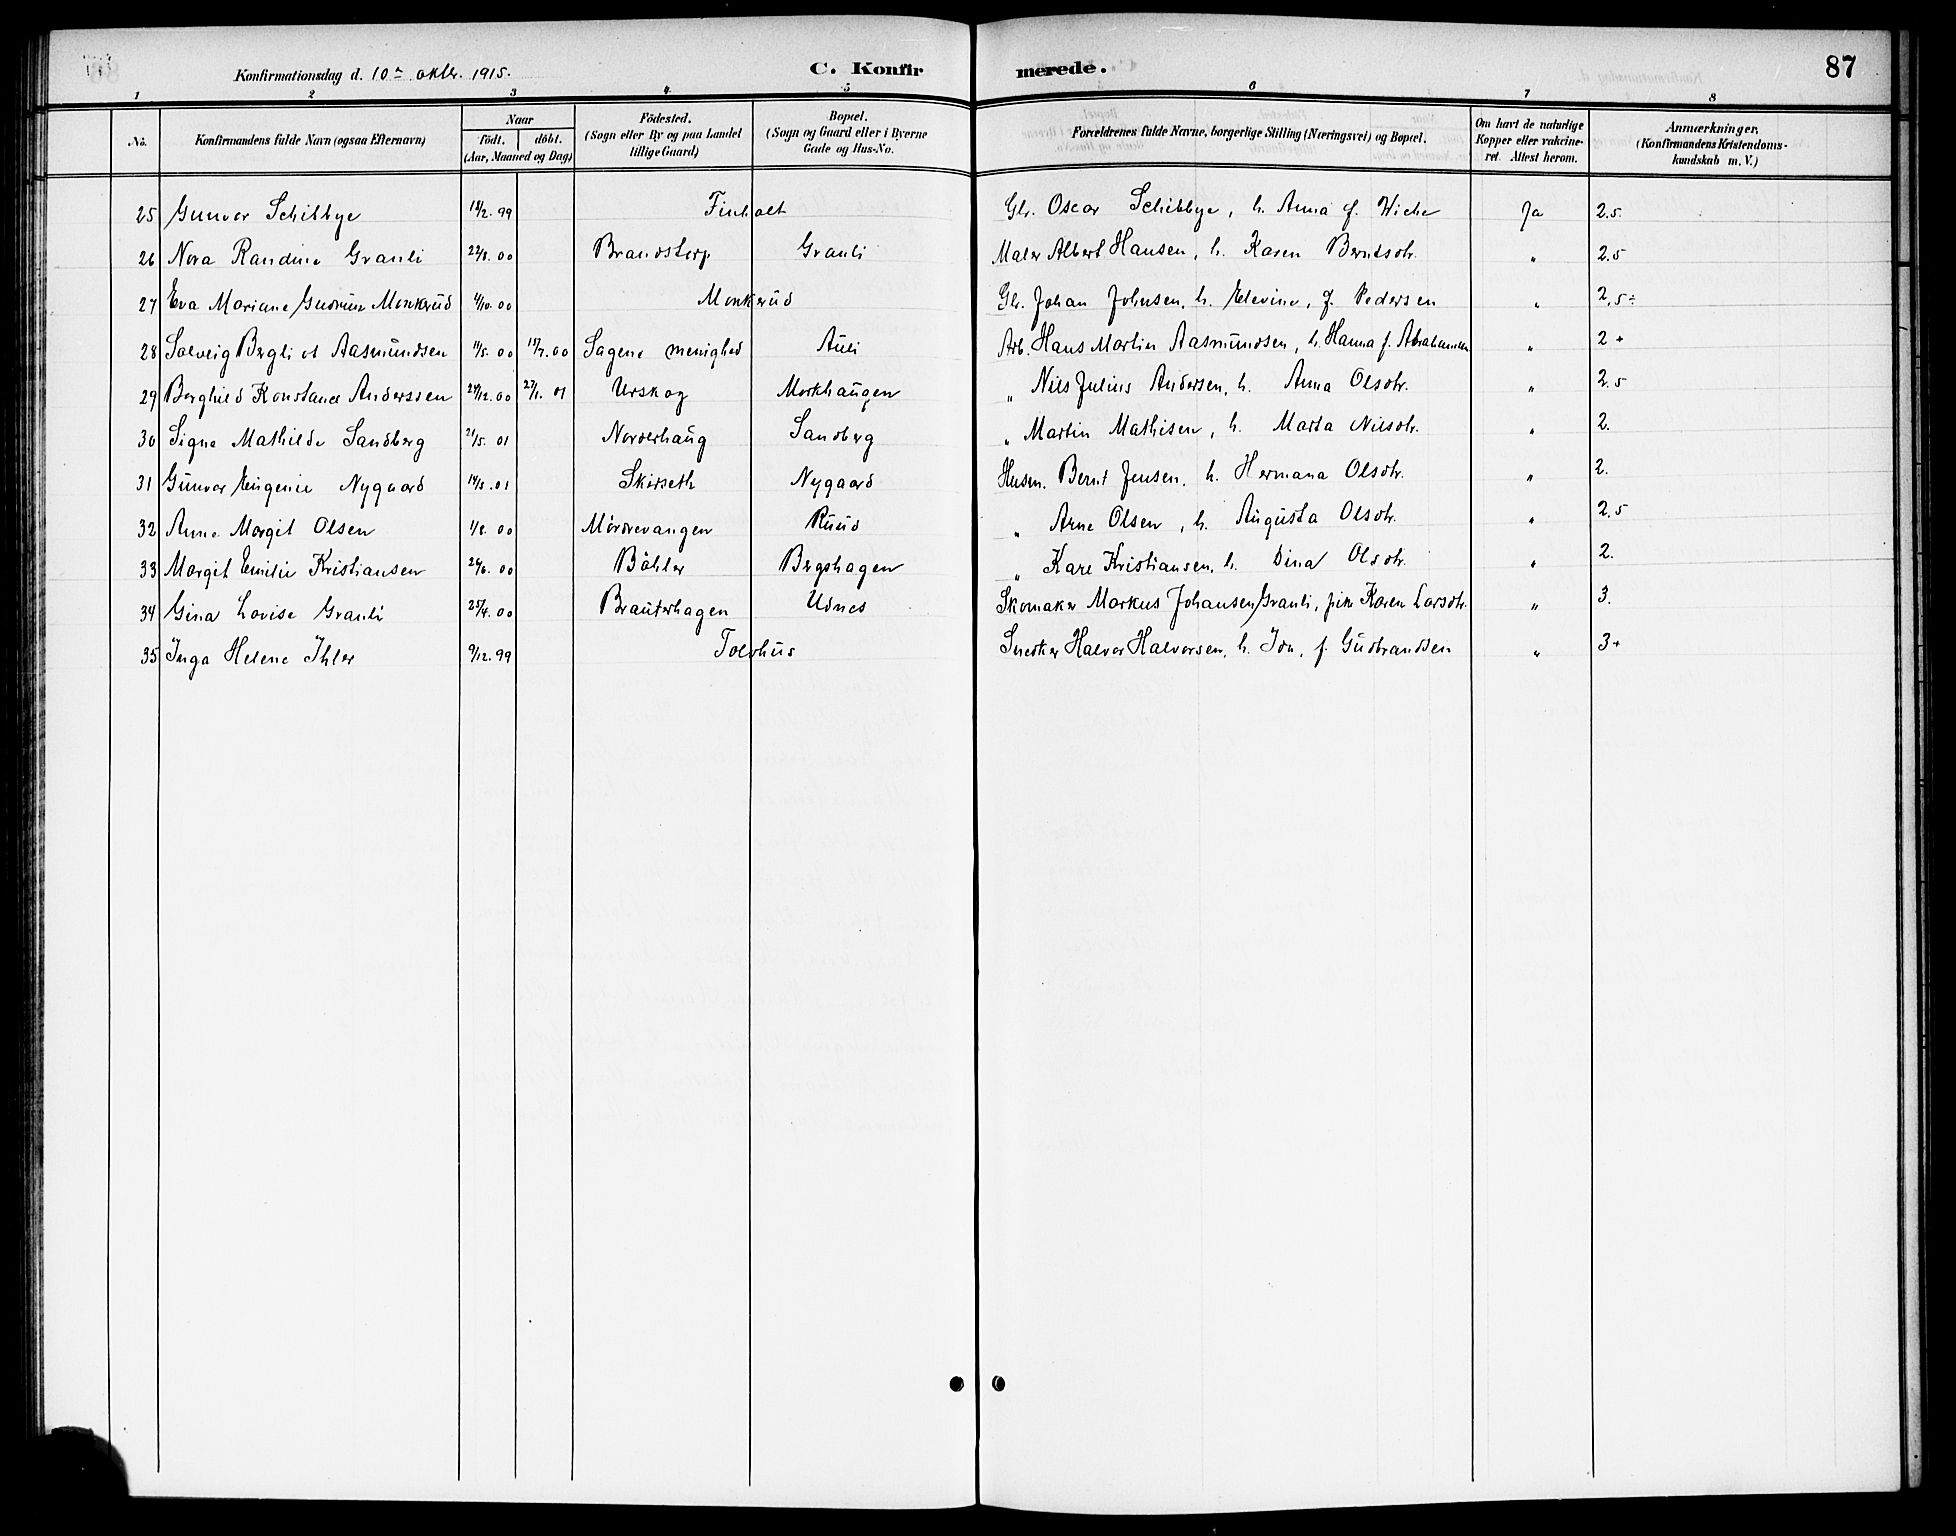 Konfirmationsdag d. 10de oktbr. 1915.
C. Konfirmerede.
87
1 2 3 4 5 6 7 8
No.
Konfirmandens fulde Navn (ogsaa Efternavn)
Naar
födt. döbt.
(Aar, Maaned og Dag)
Födested.
(Sogn eller By og paa Landet
tillige Gaard)
Bopæl.
(Sogn og Gaard eller i Byerne
Gade og Hus-No.
Forældrenes fulde Navne, borgerlige Stilling (Næringsvei) og Bopæl.
Om havt de naturlige
Kopper eller vakcine-
ret. Attest herom.
Anmærkninger.
(Konfirmandens Kristendoms-
kundskab m. V.)
25 Gunvor Schibbye /2. 99 Finholt Gbr. Oscar Schibbye, h. Anna f. Ja 2.5
26 Nora Randine Granli 22/8. 00 Brandstorp Granli Maler Albert Hansen, h. Karen Berntsdtr. " 2.5
27 Eva Mariane Gudrun Monkrud 4/10. 00 Monkrud Gbr. Johan Johnsen, h. Elevine, f. Pedersen " 2,5÷
28 Solveig Bergliot Aasmundsen 11/5. 00 15/7. 00 Sagene menighed Auli Arb. Hans Martin Aasmundsen, h. Hanna f. Abrahamsen " 2+
29 Borghild Konstance Anderssen /12. 00 27/1. 01 Urskog Morkhaugen " Nils Julius Andersen, h. Anna Olsdtr. " 2.5
30 Signe Mathilde Sandberg 21/5. 01 Norderhaug Sandberg " Martin Mathisen, h. Marta Nilsdtr. " 2.
31 Gunvor Eugenie Nygaard 14/8. 01 Skirseth Nygaard Husm. Bernt Jensen, h. Hermana Olsdtr. " 2.
32 Anne Margit Olsen 1/8. 00 Mördrevangen Ruud " Arne Olsen, h. Augusta Olsdtr. " 2.5
33 Margit Emilie Kristiansen 26/6. 00 Böhler Bergshagen " Kare Kristiansen, h. Dina Olsdtr. " 2.
34 Gina Lovise Granli 25/4. 00 Brauterhagen Udnes Skomaker Markus Johansen Granli, pike Karen Larsdtr. " 3.
35 Inga Helene Ihler 9/12. 99 Toldhus Snedker Halvor Halvorsen, h. Ida, f. Gudbrandsen " 3+